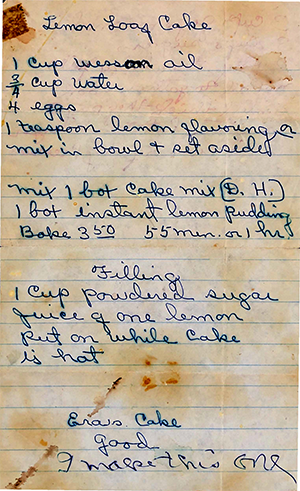 Lemon Loaf Cake
1 cup wesson oil
3/4 cup water
4 eggs
1 teaspoon lemon flavoring or
mix in bowl & set aside
mix 1 box cake mix (D. H.)
1 box instant lemon pudding
Bake 350 55 min. or 1 hr.
Filling
1 cup powdered sugar
Juice of one lemon
put on while cake
is hot
Era's Cake
Good
I make this one